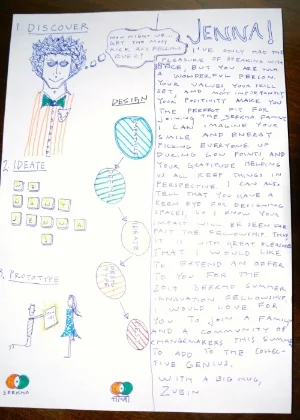 1. DISCOVER
HOW MIGHT WE...
GET THE MOST
KICK ASS FELLOWS
EVER?
DESIGN
2. IDEATE
WE
WANT
JENNA
!
ITERATE
3. PROTOTYPE
SEEKMO
TIMI
JENNA!
I'VE ONLY HAD THE
PLEASURE OF SPEAKING WITH
TWICE, BUT YOU ARE
A WONDERFUL PERSON.
YOUR VALUES, YOUR SKILL
SET, AND MOST IMPORTANTLY
YOUR POSITIVITY MAKE YOU
THE PERFECT FIT FOR
JOINING THE FAMILY.
I CAN IMAGINE YOUR
SMILE AND ENERGY
PICKING EVERYONE UP
DURING LOW POINTS AND
YOUR GRATITUDE HELPING
US ALL KEEP THINGS IN
PERSPECTIVE. I CAN ALSO
TELL THAT YOU HAVE A
KEEN EYE FOR DESIGNING
SPACES, SO I KNOW YOUR
IMPACT WILL BE SEEN FAR
PAST THE FELLOWSHIP. THUS,
IT IS WITH GREAT PLEASURE
THAT I WOULD LIKE
TO EXTEND AN OFFER
TO YOU FOR THE
SUMMER
INNOVATION FELLOWSHIP.
WOULD LOVE FOR
YOU TO JOIN A FAMILY
AND A COMMUNITY OF
CHANGEMAKERS THIS SUMMER
TO ADD TO THE COLLEC-
TIVE GENIUS.
WITH A BIG HUG,
ZUBIN